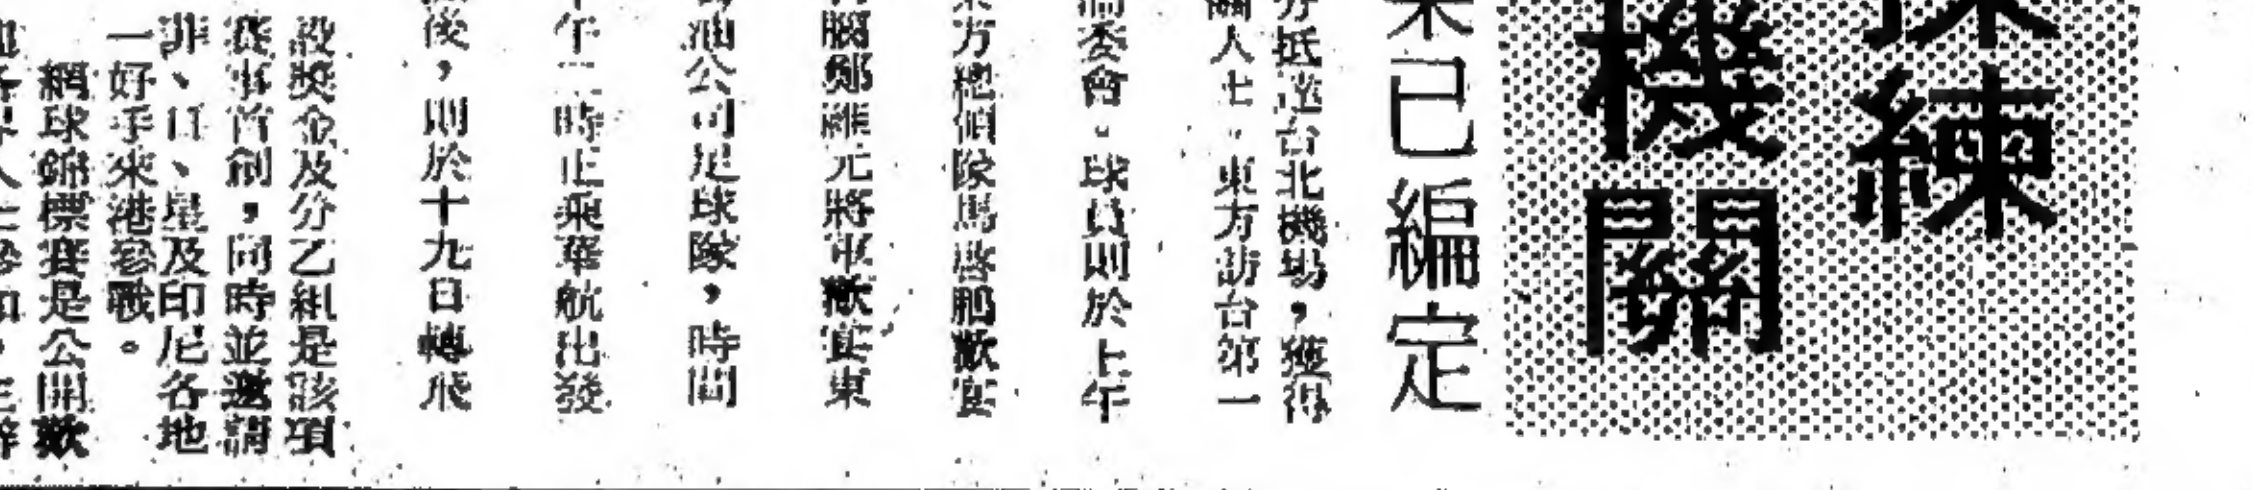 練
機關
已編定
抵達台北機場，獲得
人士。東方訪台第一
委會。球員則於上午
方總領隊馬啓邢歡宴
腦鄭維元將軍歡宴東
油公司足球隊，時間
午一時正乘華航出發
後，則於十九日轉飛
設獎金及分乙組是該項
賽事首創，同時並邀請
菲、日、星及印尼各地
一好手來港參戰。
網球錦標賽是公開歡